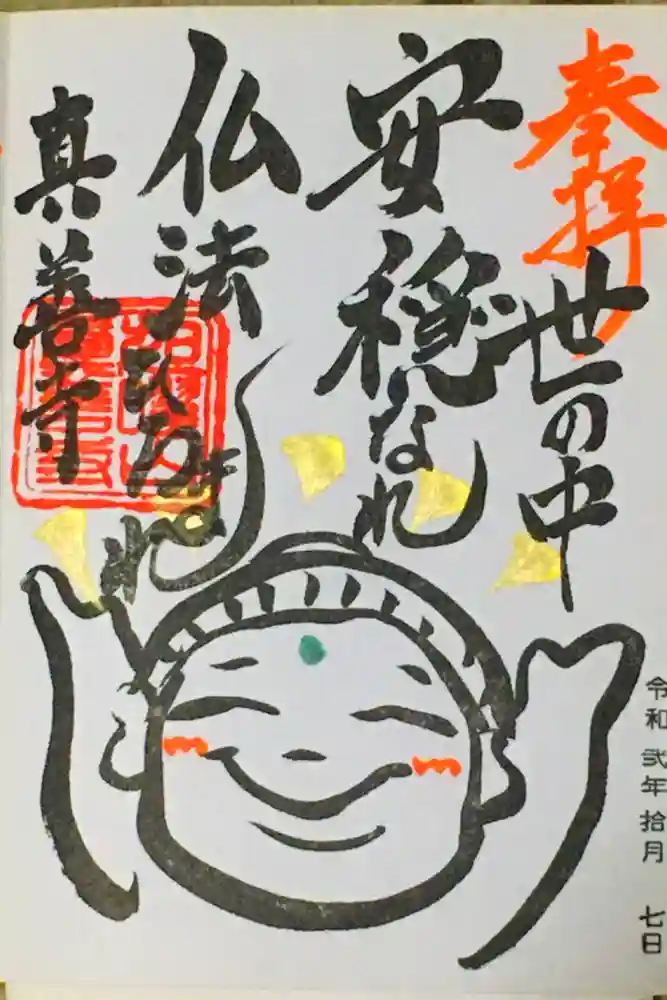 奉拝
世の中
安穏なれ
仏法ひろまれ
真善寺
令和弐年拾月七日